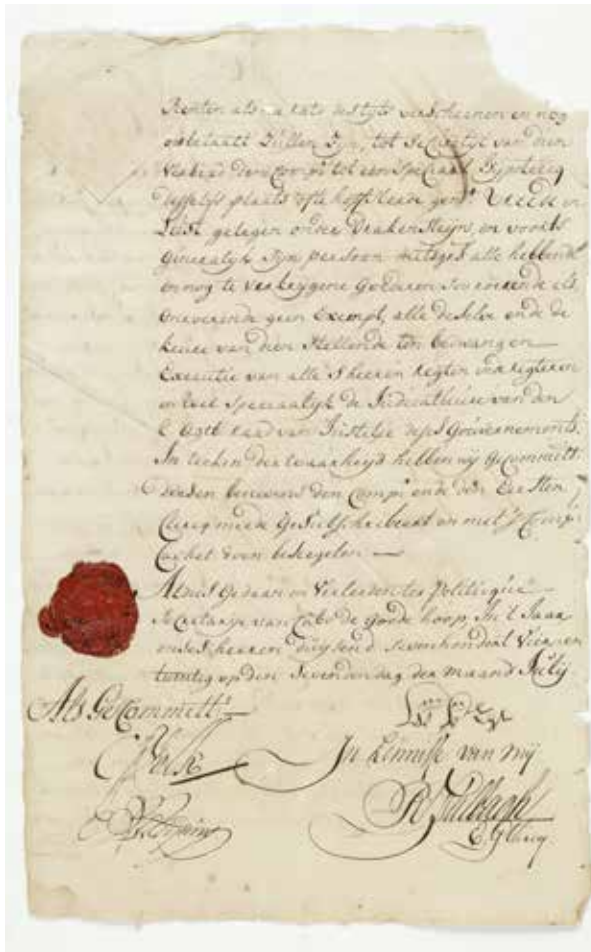 Renten als na rato des tyts verscheenen en nog
onbetaalt Zullen Zyn, tot Securityt van dien
Verband den Comp:t tot een Speciaal Hypoteecq
desselfs plaats ofte hoffsteede gen:t Vreede en
Lust gelegen onder Drakensteijn, en voorts
Generaalyk Zyn persoon mitsg:s alle hebbende
en nog te verkrygene Goederen Soo roerende als
onroerende geen Exempt, alle deselve ende de
keure van dien Stellende ten bedwang en
Executie van alle 's heeren Regten en Regteren
en wel Speciaalyk de Judicature van den
E Agtb raad van Justitie deses Gouvernements.
In teeken der waarheyd hebben wij Gecommitt:
den Comp:t ende den Eersten
Clercq meede Geteekent en met 's Comp:
Cachet doen besegelen
Aldus Gedaan en Verleeden ter Politique
Secretarye van Cabo de goede hoop, In 't Jaar
onses heeren duysend Sevenhondert Vier en
twintig op den Sevenden dag der maand July
Als Gecommitt:s
In kennisse van mij
R Tulbagh
E. G Clercq